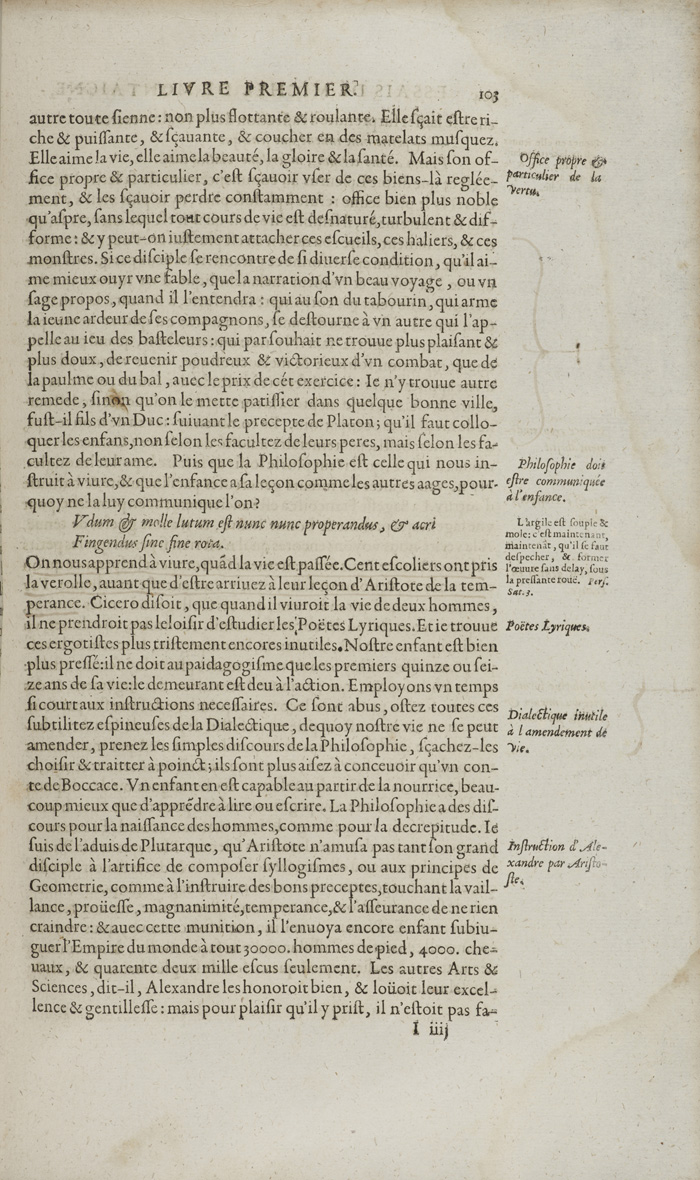 LIVRE PREMIER.
103
autre toute sienne : non plus flottante & roulante. Elle sçait estre ri-
che & puissante, & sçauante, & coucher en des matelats musquez.
Elle aime la vie, elle aime la beauté, la gloire & la santé. Mais son of-
fice propre & particulier, c'est sçauoir vser de ces biens-là reglée-
ment, & les sçauoir perdre constamment : office bien plus noble
qu'aspre, sans lequel tout cours de vie est desnaturé, turbulent & dif-
forme : & y peut-on iustement attacher ces escueils, ces haliers, & ces
monstres. Si ce disciple se rencontre de si diuerse condition, qu'il ai-
me mieux ouyr vne fable, que la narration d'vn beau voyage, ou vn
sage propos, quand il l'entendra : qui au son du tabourin, qui arme
la ieune ardeur de ses compagnons, se destourne à vn autre qui l'ap-
pelle au ieu des basteleurs : qui par souhait ne trouue plus plaisant &
plus doux, de reuenir poudreux & victorieux d'vn combat, que de
la paulme ou du bal, auec le prix de cét exercice : Ie n'y trouue autre
remede, sinon qu'on le mette patissier dans quelque bonne ville,
fust-il fils d'vn Duc : suiuant le precepte de Platon; qu'il faut collo-
quer les enfans, non selon les facultez de leurs peres, mais selon les fa-
cultez de leur ame. Puis que la Philosophie est celle qui nous in-
struit à viure, & que l'enfance a sa leçon comme les autres aages, pour-
quoy ne la luy communique l'on?
Vdum & molle lutum est nunc nunc properandus, & acri
Fingendus sine fine rota.
On nous apprend à viure, quãd la vie est passée. Cent escoliers ont pris
la verolle, auant que d'estre arriuez à leur leçon d'Aristote de la tem-
perance. Cicero disoit, que quand il viuroit la vie de deux hommes,
il ne prendroit pas le loisir d'estudier les Poëtes Lyriques. Et ie trouue
ces ergotistes plus tristement encores inutiles. Nostre enfant est bien
plus pressé : il ne doit au paidagogisme que les premiers quinze ou sei-
ze ans de sa vie : le demeurant est deu à l'action. Employons vn temps
si court aux instructions necessaires. Ce sont abus, ostez toutes ces
subtilitez espineuses de la Dialectique, dequoy nostre vie ne se peut
amender, prenez les simples discours de la Philosophie, sçachez-les
choisir & traitter à poinct; ils sont plus aisez à conceuoir qu'vn con-
te de Boccace. Vn enfant en est capable au partir de la nourrice, beau-
coup mieux que d'apprẽdre à lire ou escrire. La Philosophie a des dis-
cours pour la naissance des hommes, comme pour la decrepitude. Ie
suis de l'aduis de Plutarque, qu'Aristote n'amusa pas tant son grand
disciple à l'artifice de composer syllogismes, ou aux principes de
Geometrie, comme à l'instruire des bons preceptes, touchant la vail-
lance, proüesse, magnanimité, temperance, & l'asseurance de ne rien
craindre : & auec cette munition, il l'enuoya encore enfant subiu-
guer l'Empire du monde à tout 30000. hommes de pied, 4000. che-
uaux, & quarente deux mille escus seulement. Les autres Arts &
Sciences, dit-il, Alexandre les honoroit bien, & loüoit leur excel-
lence & gentillesse : mais pour plaisir qu'il y prist, il n'estoit pas fa-
I iiij
Office propre &
particulier de la
Vertu.
Philosophie doit
estre communiquée
à l'enfance.
L'argile est souple &
mole : c'est maintenant,
maintenãt, qu'il se faut
despecher, & former
l'œuure sans delay, sous
la pressante rouë. Pers.
Sat. 3.
Poëtes Lyriques.
Dialectique inutile
à l'amendement de
Vie.
Instruction d'Ale-
xandre par Aristo-
ste.